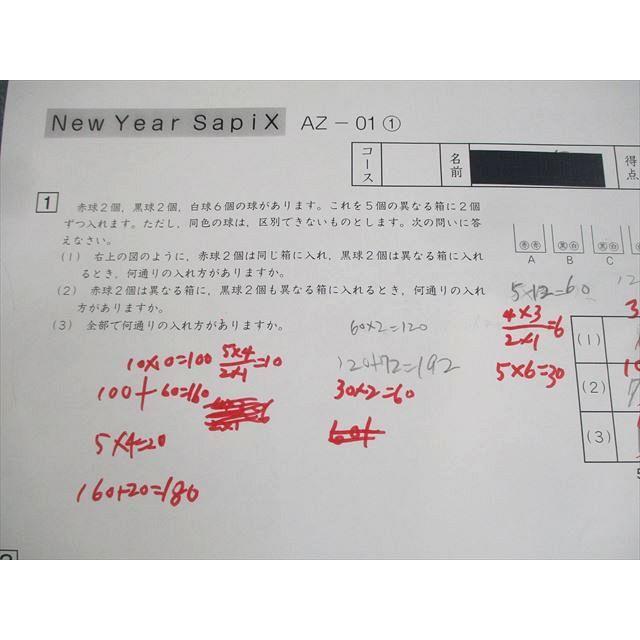 New Year SapiX AZ-01①
コース 名前 得点
1 赤球2個，黒球2個，白球6個の球があります。これを5個の異なる箱に2個
ずつ入れます。ただし，同色の球は，区別できないものとします。次の問いに答
えなさい。
(1) 右上の図のように，赤球2個は同じ箱に入れ，黒球2個は異なる箱に入れ
るとき，何通りの入れ方がありますか。
(2) 赤球2個は異なる箱に，黒球2個も異なる箱に入れるとき，何通りの入れ
方がありますか。
(3) 全部で何通りの入れ方がありますか。
赤赤 黒白 黒白 白
A B C
5×12=60
4×3/2×1=6
5×6=30
60×2=120
120+72=192
30×2=60
10×10=100 5×4/2×1=10
100+60=160
5×4=20
160+20=180
(1)
(2)
(3)